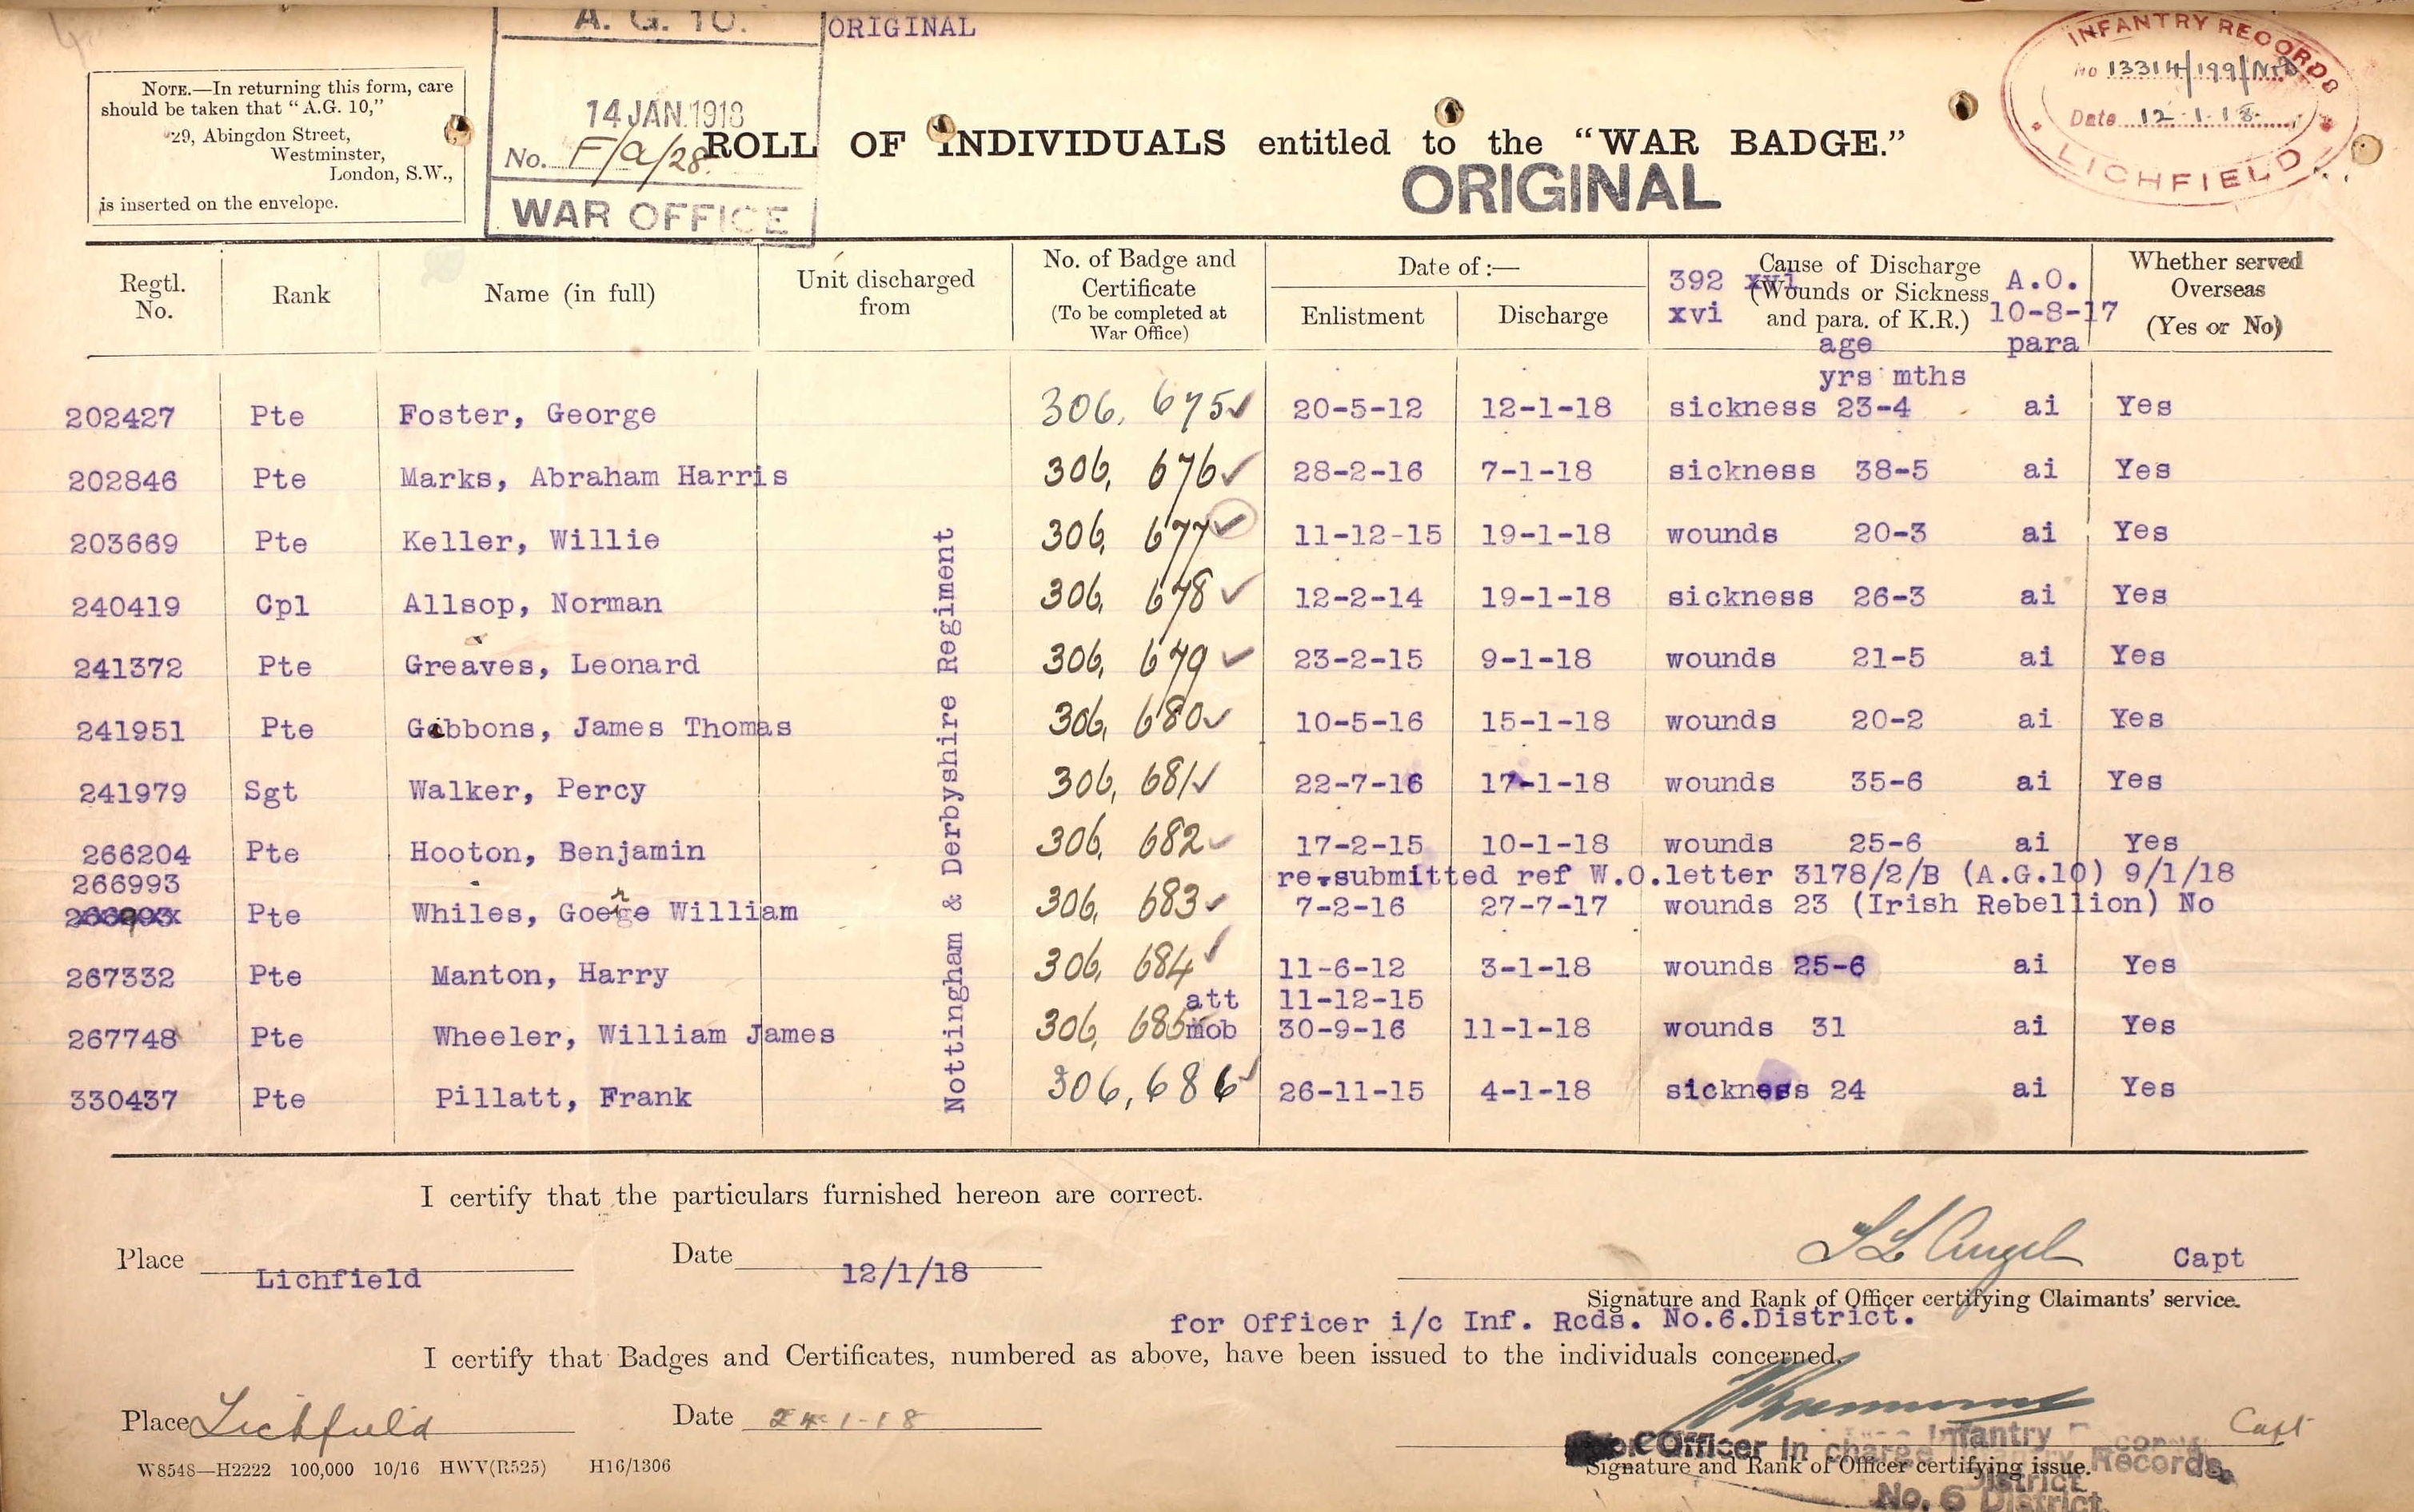 A. G. 10.
ORIGINAL
NOTE.—In returning this form, care
should be taken that "A.G. 10,"
29, Abingdon Street,
Westminster,
London, S.W.,
is inserted on the envelope.
14 JAN. 1918
No. F/a/28.
WAR OFFICE
INFANTRY RECORDS
No 13314/199/
Date 12.1.18.
LICHFIELD
ROLL OF INDIVIDUALS entitled to the "WAR BADGE."
ORIGINAL
Regtl. No. Rank Name (in full) Unit discharged from No. of Badge and Certificate (To be completed at War Office) Date of :— Enlistment Discharge Cause of Discharge (Wounds or Sickness and para. of K.R.) Whether served Overseas (Yes or No)
392 xvi A.O.
xvi 10-8-17
age para
yrs mths
202427 Pte Foster, George 306, 675 ✓ 20-5-12 12-1-18 sickness 23-4 ai Yes
202846 Pte Marks, Abraham Harris 306, 676 ✓ 28-2-16 7-1-18 sickness 38-5 ai Yes
203669 Pte Keller, Willie 306, 677 ✓ 11-12-15 19-1-18 wounds 20-3 ai Yes
240419 Cpl Allsop, Norman 306, 678 ✓ 12-2-14 19-1-18 sickness 26-3 ai Yes
241372 Pte Greaves, Leonard 306, 679 ✓ 23-2-15 9-1-18 wounds 21-5 ai Yes
241951 Pte Gibbons, James Thomas 306, 680 ✓ 10-5-16 15-1-18 wounds 20-2 ai Yes
241979 Sgt Walker, Percy 306, 681 ✓ 22-7-16 17-1-18 wounds 35-6 ai Yes
266204 Pte Hooton, Benjamin 306, 682 ✓ 17-2-15 10-1-18 wounds 25-6 ai Yes
266993 re-submitted ref W.O.letter 3178/2/B (A.G.10) 9/1/18
Pte Whiles, Goerge William 306, 683 ✓ 7-2-16 27-7-17 wounds 23 (Irish Rebellion) No
267332 Pte Manton, Harry 306, 684 ✓ 11-6-12 3-1-18 wounds 25-6 ai Yes
att 11-12-15
267748 Pte Wheeler, William James 306, 685 mob 30-9-16 11-1-18 wounds 31 ai Yes
330437 Pte Pillatt, Frank 306,686 ✓ 26-11-15 4-1-18 sickness 24 ai Yes
Nottingham & Derbyshire Regiment
I certify that the particulars furnished hereon are correct.
Place Lichfield Date 12/1/18 Capt
Signature and Rank of Officer certifying Claimants' service.
for Officer i/c Inf. Rcds. No.6.District.
I certify that Badges and Certificates, numbered as above, have been issued to the individuals concerned.
Place Lichfield Date 24-1-18 Capt
Officer in charge Infantry Records
Signature and Rank of Officer certifying issue.
No. 6 District.
W8548—H2222 100,000 10/16 HWV(R525) H16/1306